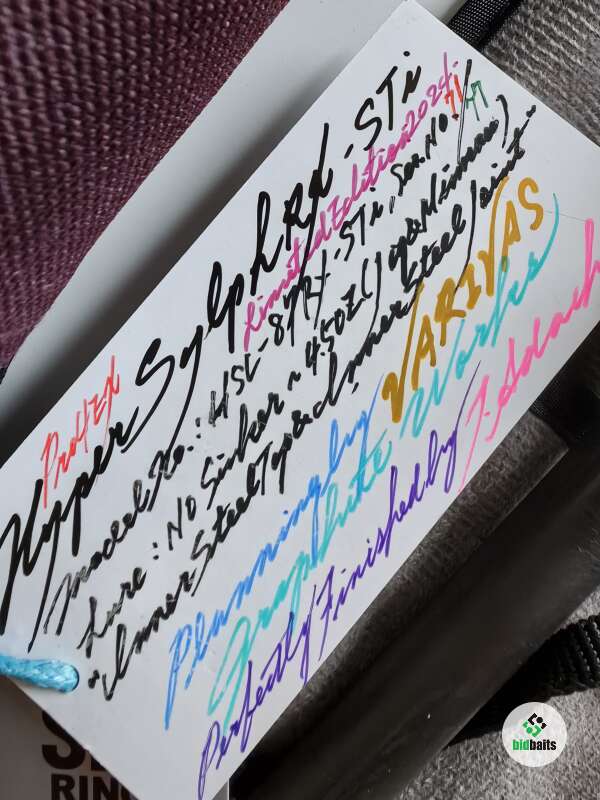 ProtEX
Hyper Sylph RX-STi
Limited Edition 2024.
Model No.: HSL-87RX-STi, Ser. No. 71/77
Lure: No Sinker ~ 4.5oz (Jig & Minnow)
"Inner Steel Top & Inner Steel Joint"
Planning by VARIVAS
Graphite Works
Perfectly Finished by
RING
bidbaits